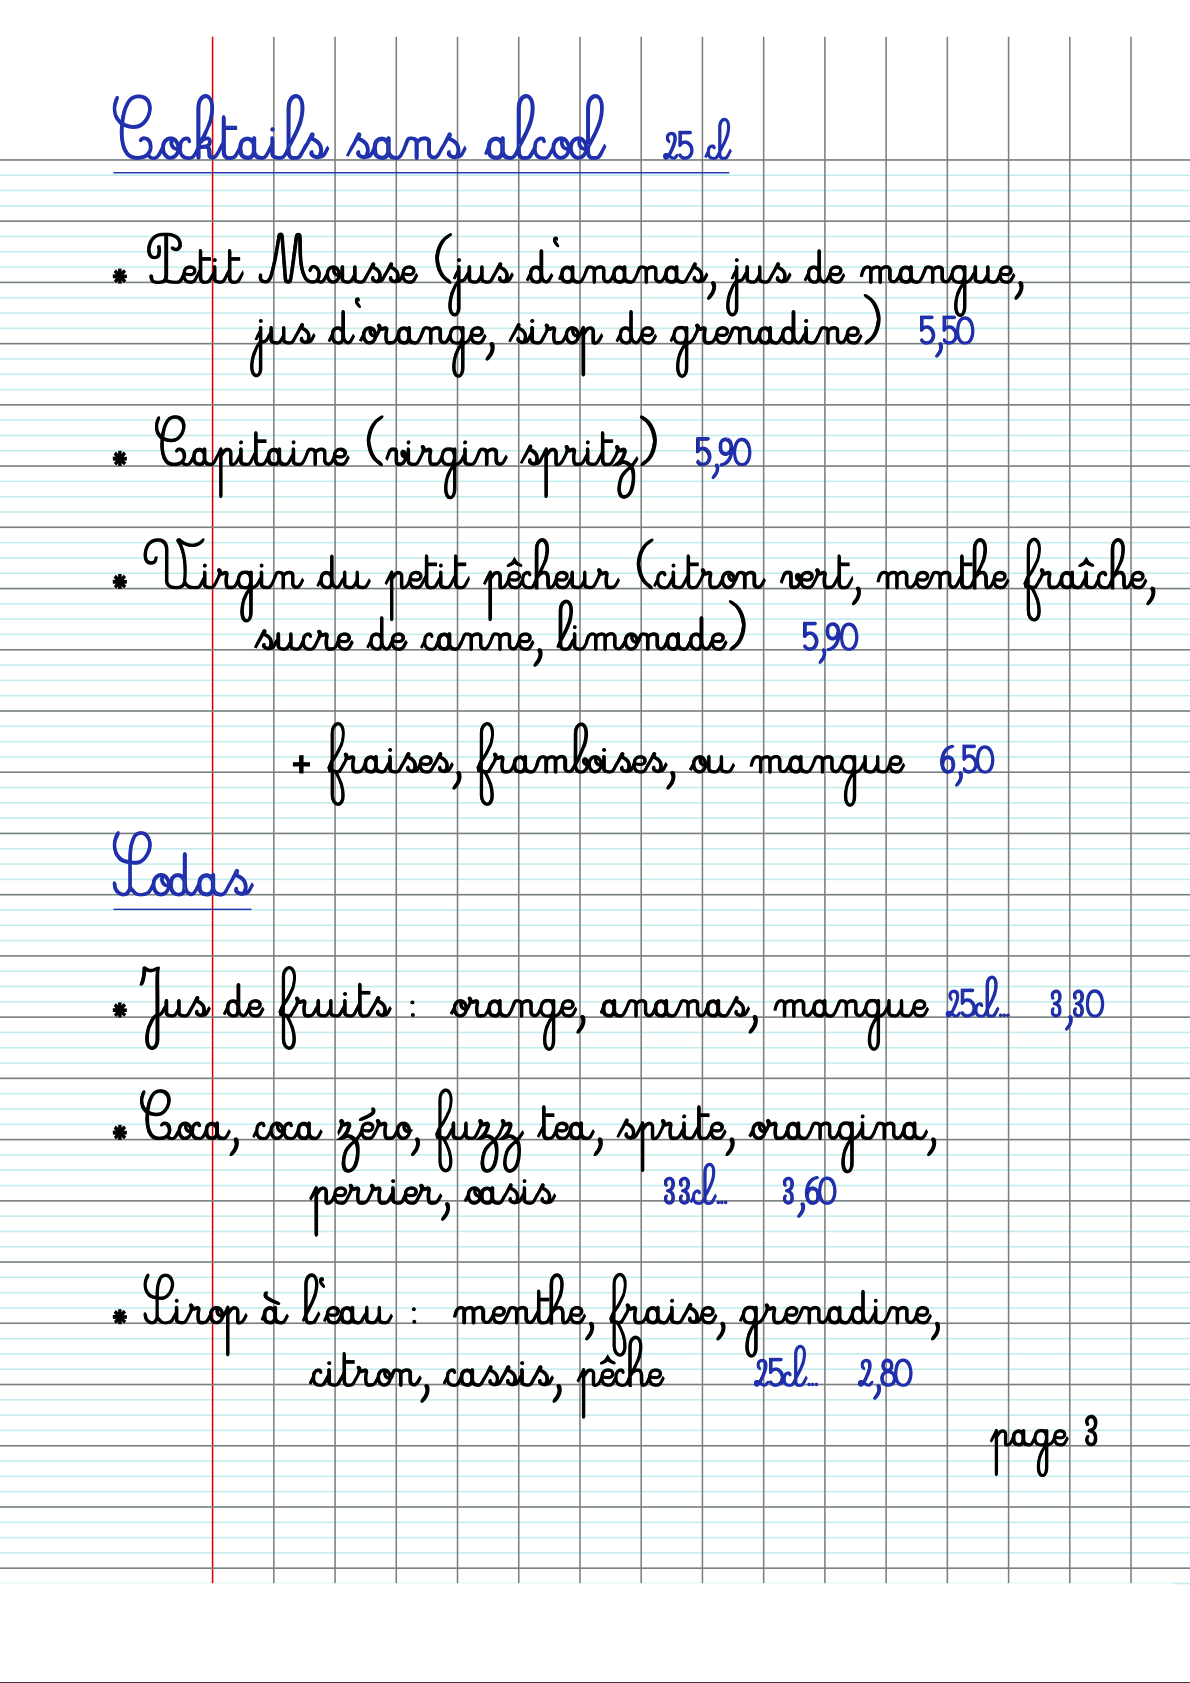 Cocktails sans alcool 25 cl
* Petit Mousse (jus d'ananas, jus de mangue,
jus d'orange, sirop de grenadine) 5,50
* Capitaine (virgin spritz) 5,90
* Virgin du petit pêcheur (citron vert, menthe fraîche,
sucre de canne, limonade) 5,90
+ fraises, framboises, ou mangue 6,50
Sodas
* Jus de fruits : orange, ananas, mangue 25cl... 3,30
* Coca, coca zéro, fuzz tea, sprite, orangina,
perrier, oasis 33cl... 3,60
* Sirop à l'eau : menthe, fraise, grenadine,
citron, cassis, pêche 25cl... 2,80
page 3